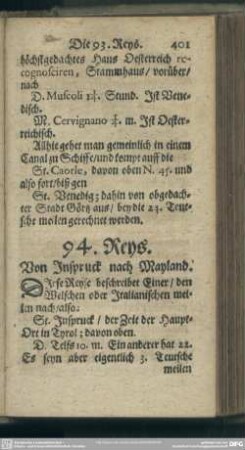 Die 93. Reys. 401
höchstgedachtes Haus Oesterreich re-
cognosciren, Stammhaus/ vorüber/
nach
D. Muscoli 1¼. Stund. Ist Vene-
disch.
M. Cervignano ¾. m. Ist Oester-
reichisch.
Allhie gehet man gemeinlich in einem
Canal zu Schiffe/ und kompt auff die
St. Caorle, davon oben N. 45. und
also fort/ biß gen
St. Venedig; dahin von obgedach-
ter Stadt Görtz aus/ bey die 23. Teut-
sche meilen gerechnet werden.
94. Reys.
Von Inspruck nach Mayland.
Diese Reyse beschreibet Einer/ den
Welschen oder Italianischen mei-
len nach/ also:
St. Inspruck/ der Zeit der Haupt-
Ort in Tyrol; davon oben.
D. Telfs 10. m. Ein anderer hat 12.
Es seyn aber eigentlich 3. Teutsche
meilen